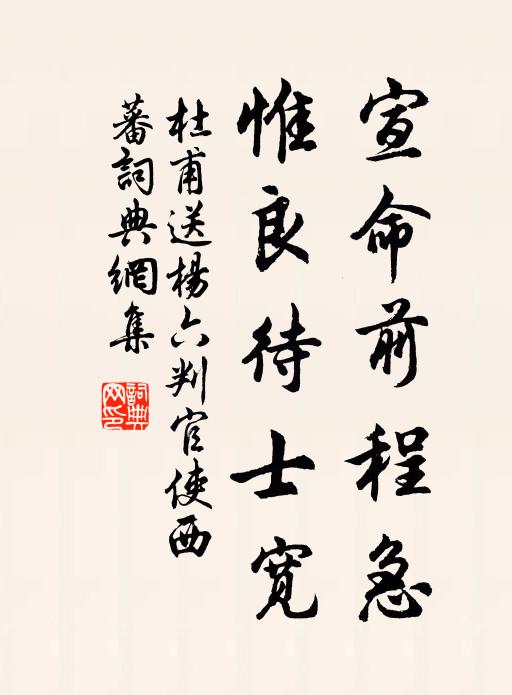 宣命前程急
惟良待士寬
杜甫送楊六判官使西
蕃詞典網集
詞典網印